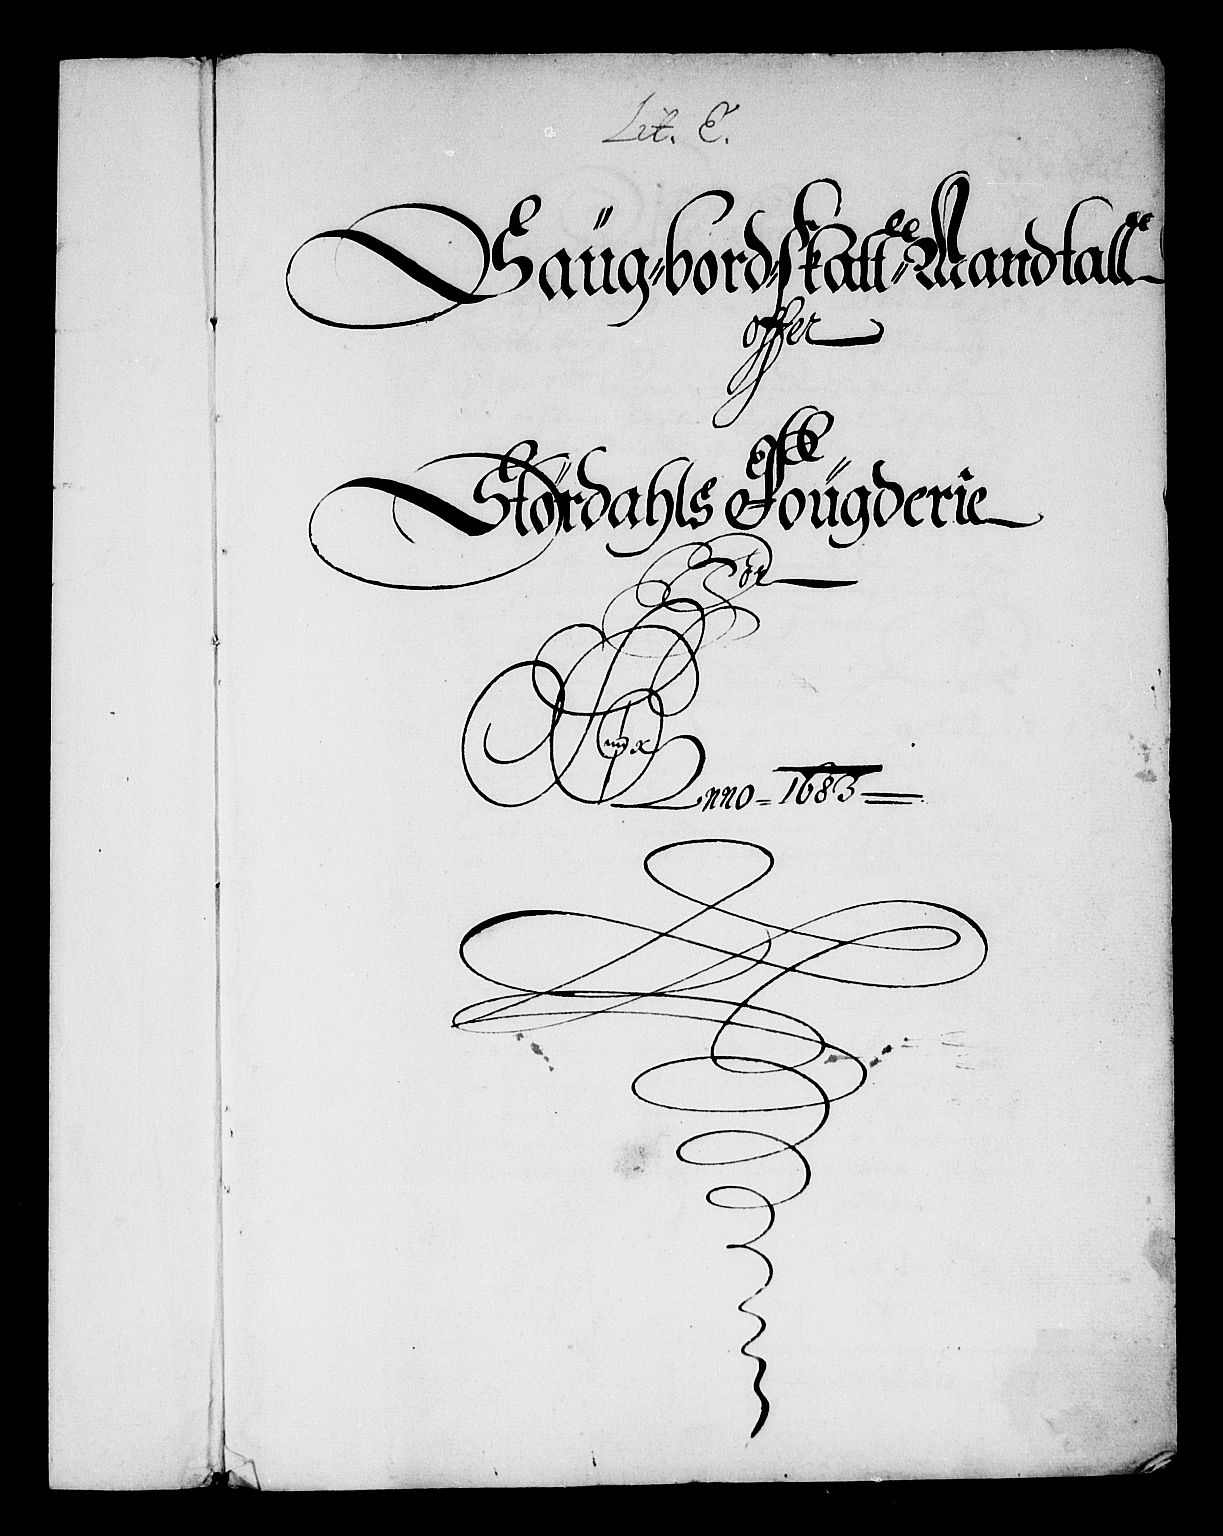 Lit. E.
Saug-bord-skatt-Mandtall
offer
Stördahls Fougderie
for
Anno = 1683 =